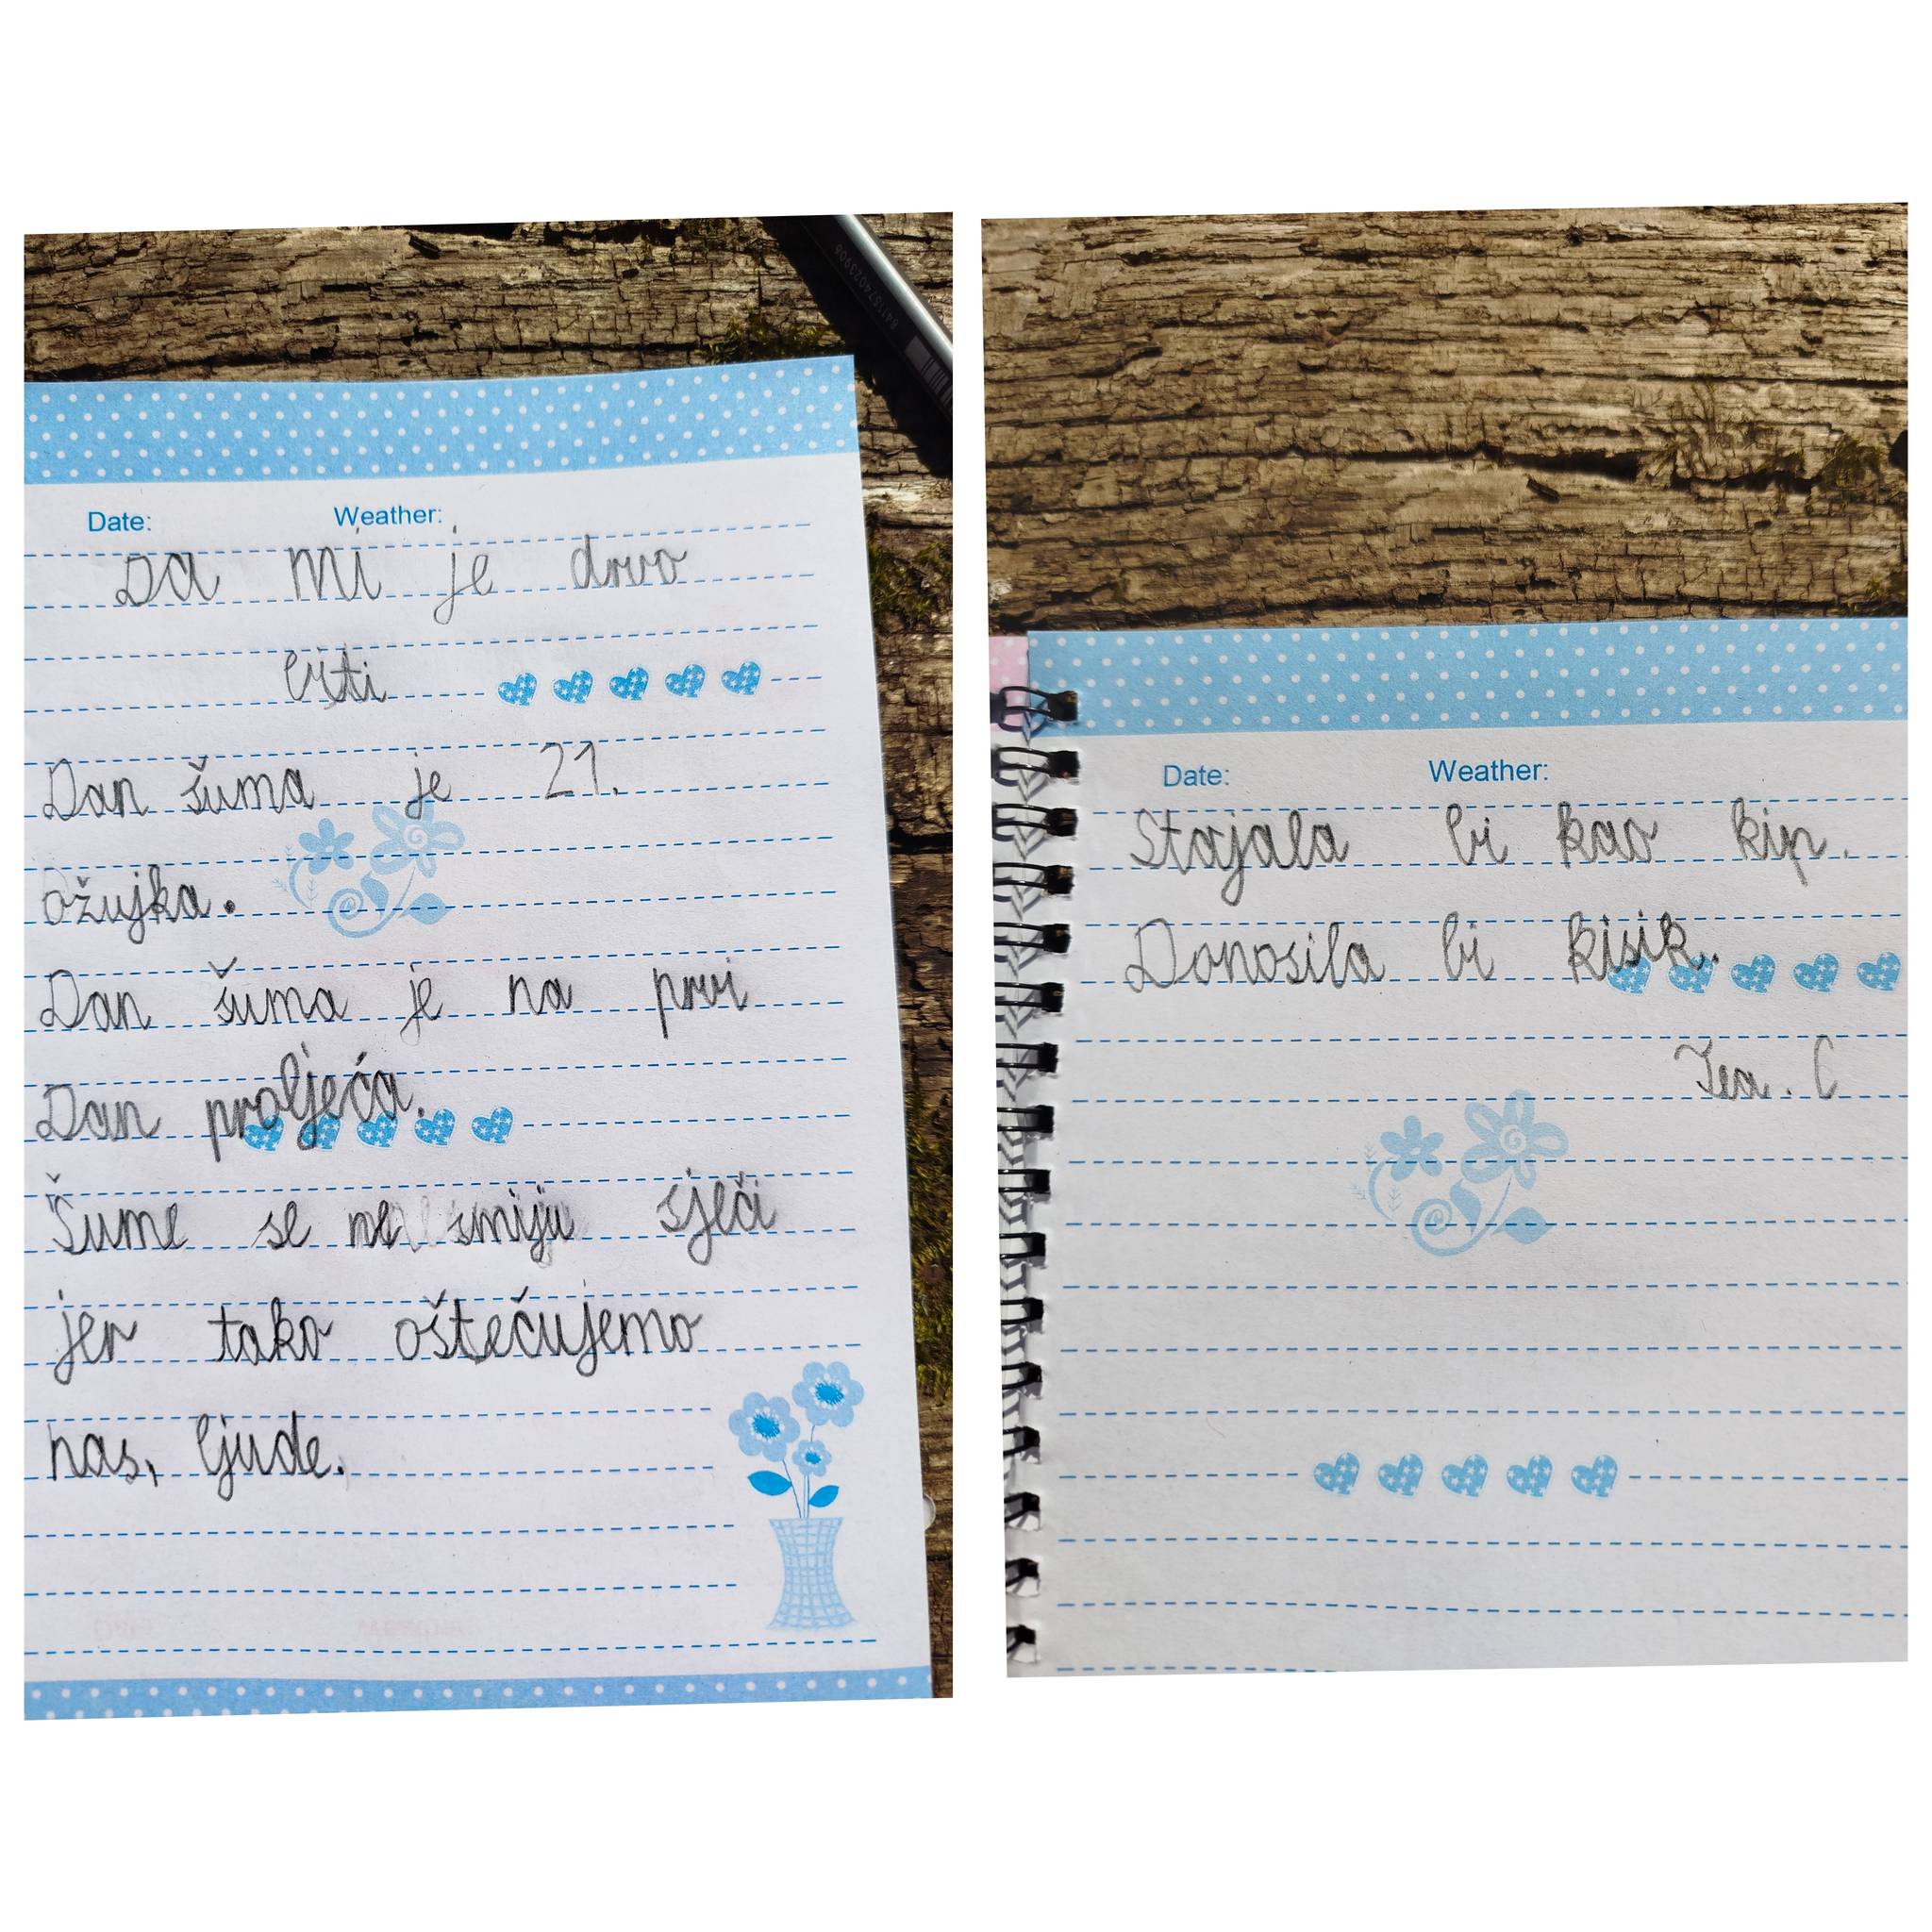 9411574023906
Date: Weather:
Da mi je drvo
biti
Dan šuma je 21.
Ožujka.
Dan šuma je na prvi
Dan proljeća.
Šume se ne smiju sječi
jer tako oštečujemo
nas, ljude.
Date: Weather:
Stajala bi kao kip.
Donosila bi kisik.
Tea. C